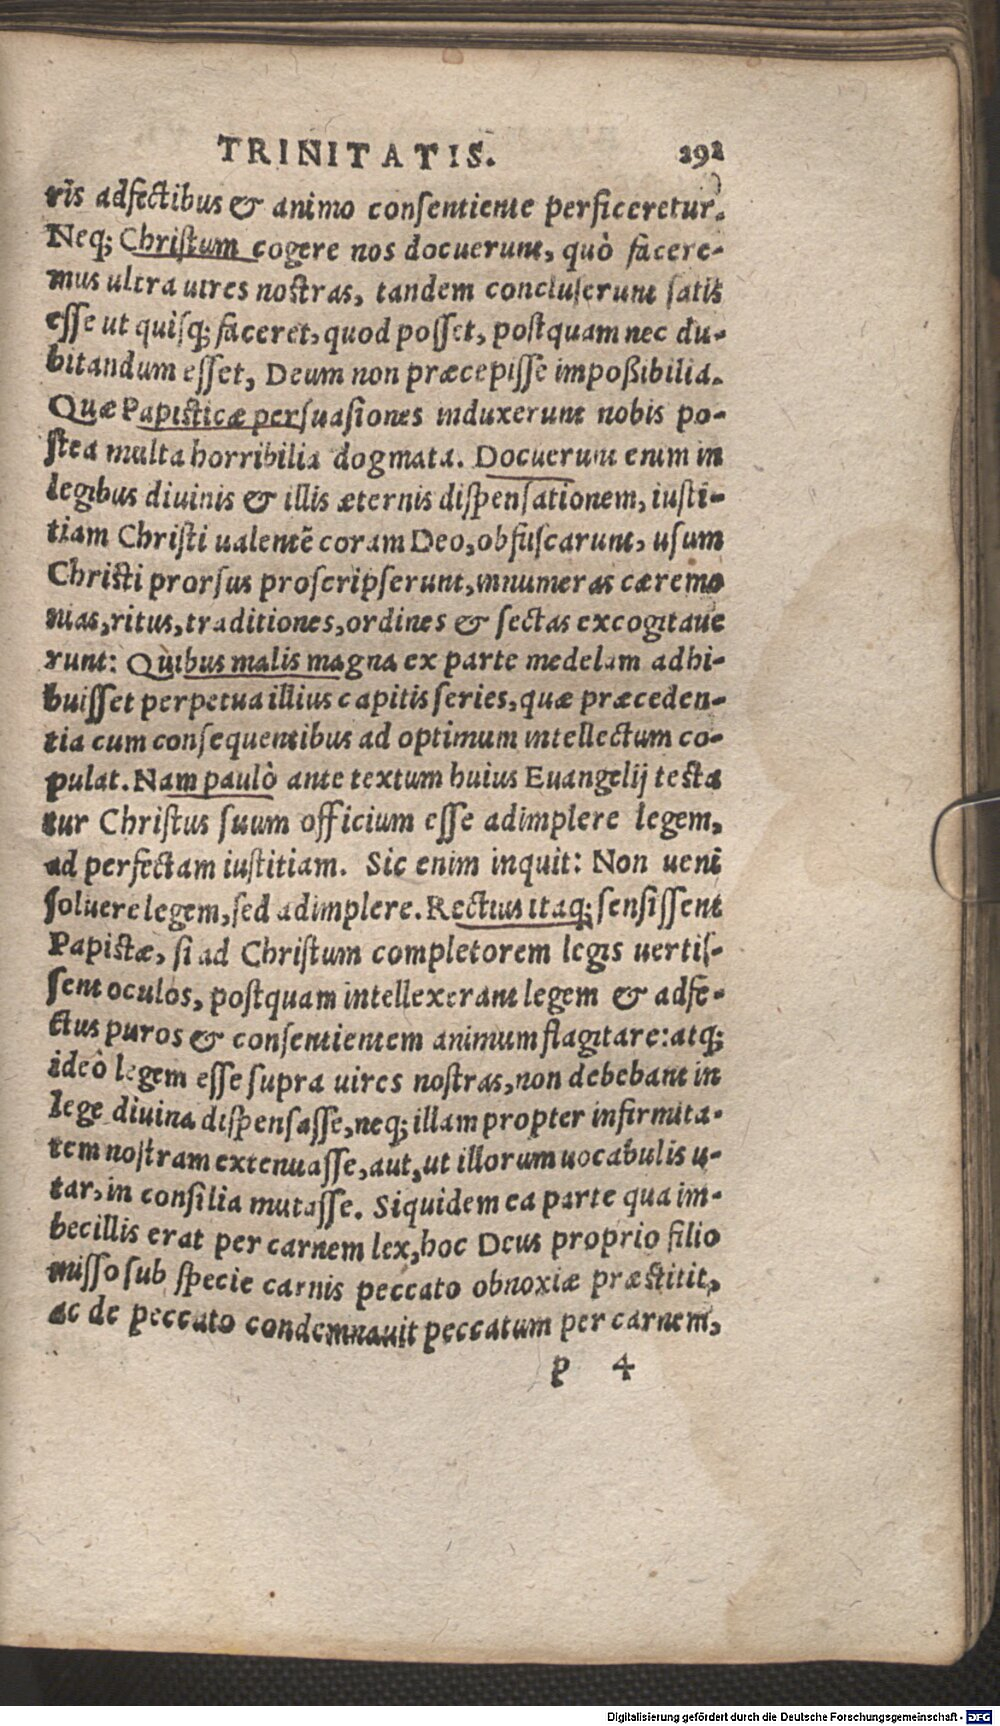 TRINITATIS. 292
ris adfectibus & animo consentiente perficeretur.
Neq; Christum cogere nos docuerunt, quò facere-
mus ultra uires nostras, tandem concluserunt satis
esse ut quisq; faceret, quod posset, postquam nec du-
bitandum esset, Deum non præcepisse impoßibilia.
Quæ Papisticæ persuasiones induxerunt nobis po-
stea multa horribilia dogmata. Docuerunt enim in
legibus diuinis & illis æternis dispensationem, iusti-
tiam Christi ualentẽ coram Deo, obfuscarunt, usum
Christi prorsus proscripserunt, innumeras cæremo
nias, ritus, traditiones, ordines & sectas excogitaue
runt: Quibus malis magna ex parte medelam adhi-
buisset perpetua illius capitis series, quæ præceden-
tia cum consequentibus ad optimum intellectum co-
pulat. Nam paulò ante textum huius Euangelij testa
tur Christus suum officium esse adimplere legem,
ad perfectam iustitiam. Sic enim inquit: Non ueni
soluere legem, sed adimplere. Rectius itaq; sensissent
Papistæ, si ad Christum completorem legis uertis-
sent oculos, postquam intellexerant legem & adfe-
ctus puros & consentientem animum flagitare: atq;
ideò legem esse supra uires nostras, non debebant in
lege diuina dispensasse, neq; illam propter infirmita-
tem nostram extenuasse, aut, ut illorum uocabulis u-
tar, in consilia mutasse. Siquidem ea parte qua im-
becillis erat per carnem lex, hoc Deus proprio filio
misso sub specie carnis peccato obnoxiæ præstitit,
ac de peccato condemnauit peccatum per carnem,
p 4
Digitalisierung gefördert durch die Deutsche Forschungsgemeinschaft - DFG